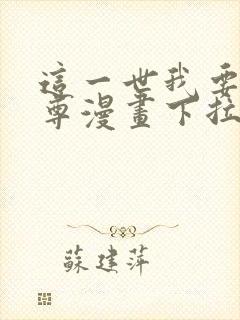 這一世我要
尊漫畫下拉
蘇建萍